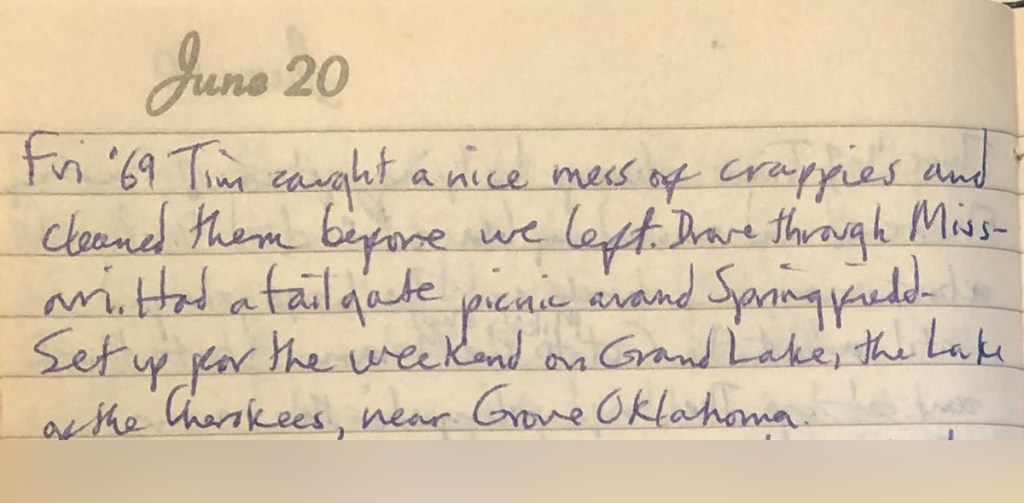 June 20
Fri '69 Tim caught a nice mess of crappies and
cleaned them before we left. Drove through Miss-
ouri. Had a tailgate picnic around Springfield-
Set up for the weekend on Grand Lake, the Lake
of the Cherokees, near Grove Oklahoma.